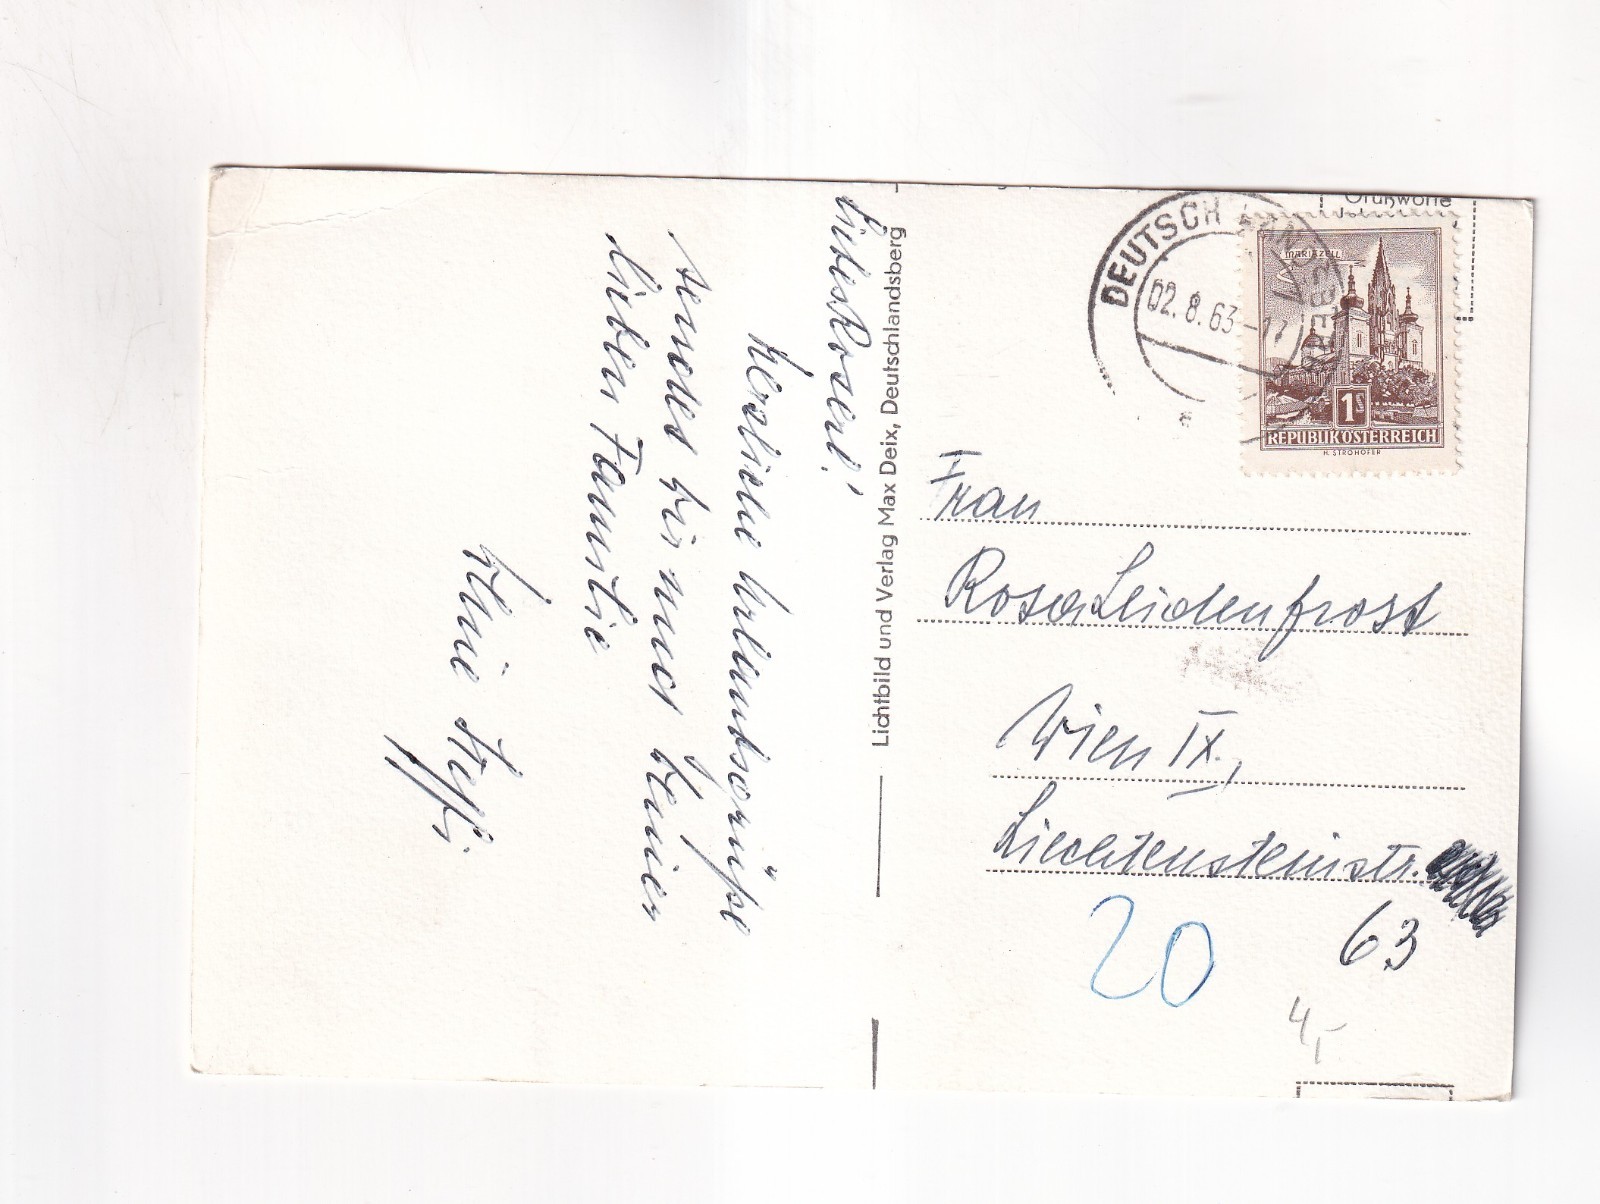 Liebes Roserl!
Herzliche Urlaubsgrüße
sendet Dir und Deiner
lieben Familie
Deine Steffi
Lichtbild und Verlag Max Deix, Deutschlandsberg
Grußworte
DEUTSCH
02.8.63-17
MARIAZELL
1S
REPUBLIK ÖSTERREICH
H. STROHOFER
Frau
Rosa Leidenfrost
Wien IX.,
Liechtensteinstr.
63
20
4,-